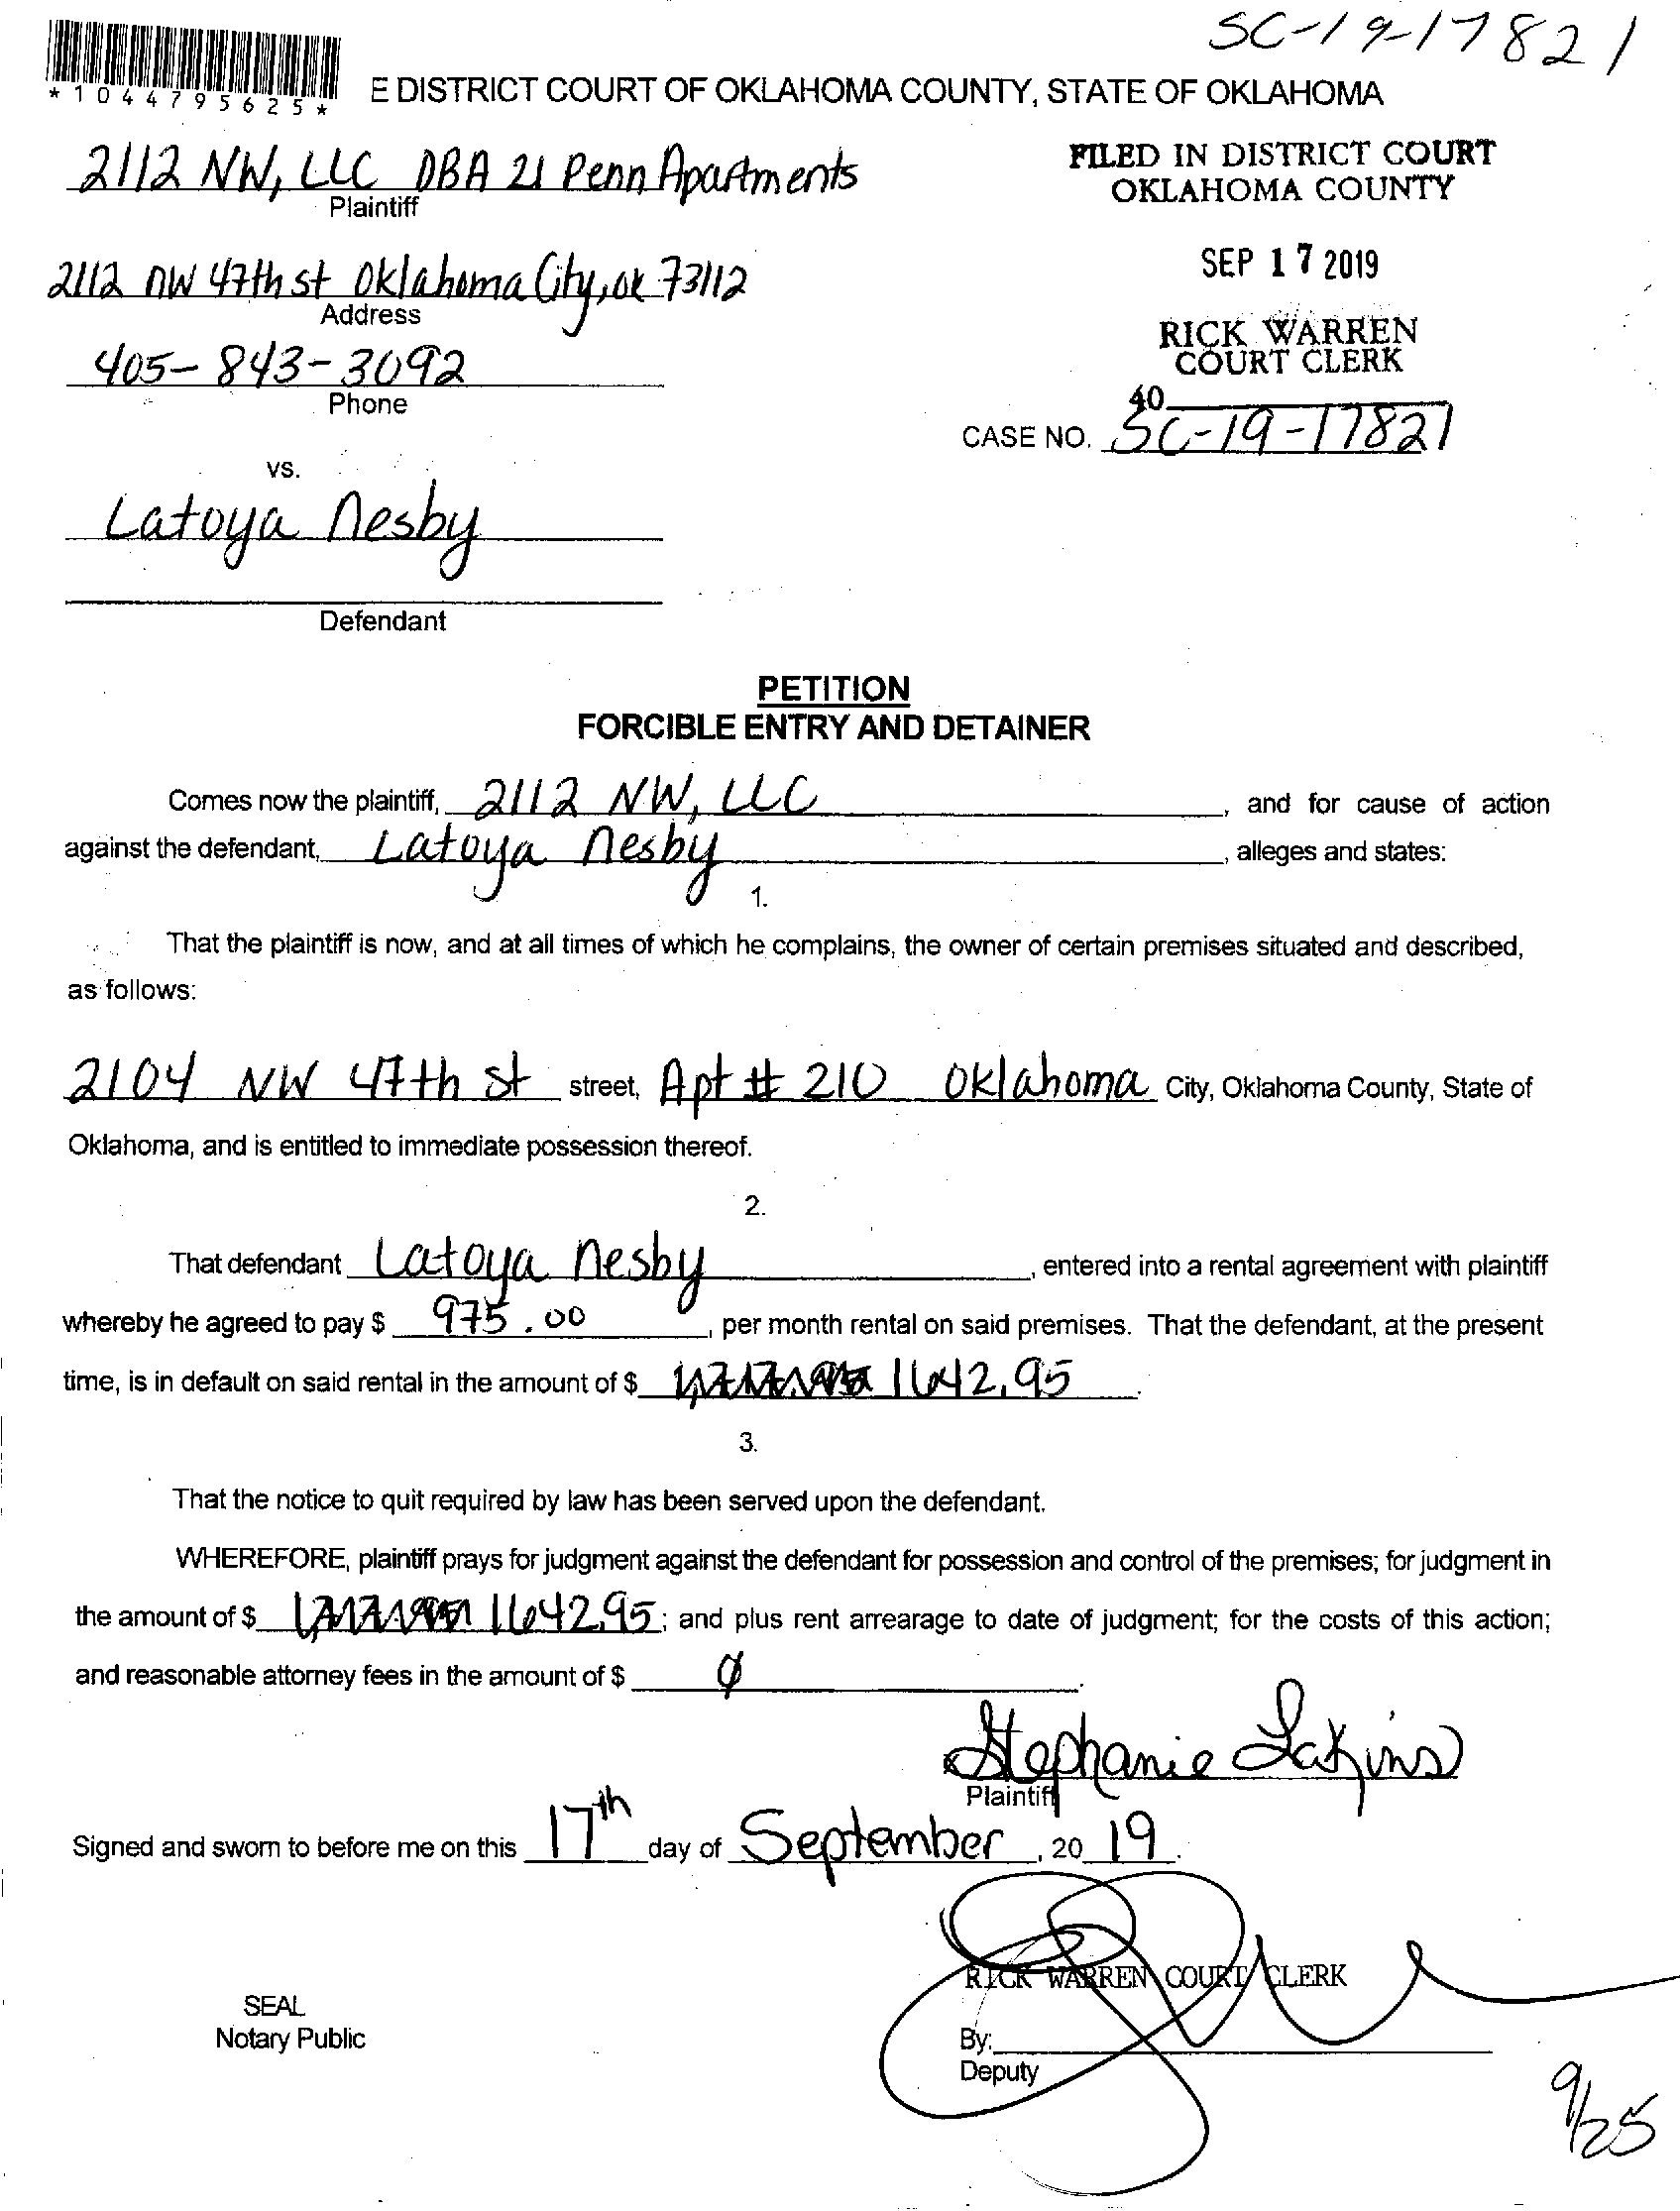 SC-19-17821
*1044795625*
E DISTRICT COURT OF OKLAHOMA COUNTY, STATE OF OKLAHOMA
2112 NW, LLC DBA 21 Penn Apartments
Plaintiff
FILED IN DISTRICT COURT
OKLAHOMA COUNTY
2112 NW 47th st Oklahoma City, OK 73112
Address
SEP 17 2019
405-843-3092
Phone
RICK WARREN
COURT CLERK
40
CASE NO. SC-19-17821
vs.
Latoya Nesby
Defendant
PETITION
FORCIBLE ENTRY AND DETAINER
Comes now the plaintiff, 2112 NW, LLC, and for cause of action
against the defendant, Latoya Nesby, alleges and states:
1.
That the plaintiff is now, and at all times of which he complains, the owner of certain premises situated and described,
as follows:
2104 NW 47th st street, Apt # 210 Oklahoma City, Oklahoma County, State of
Oklahoma, and is entitled to immediate possession thereof.
2.
That defendant Latoya Nesby, entered into a rental agreement with plaintiff
whereby he agreed to pay $ 975.00, per month rental on said premises. That the defendant, at the present
time, is in default on said rental in the amount of $ 1642.95.
3.
That the notice to quit required by law has been served upon the defendant.
WHEREFORE, plaintiff prays for judgment against the defendant for possession and control of the premises; for judgment in
the amount of $ 1642.95; and plus rent arrearage to date of judgment; for the costs of this action;
and reasonable attorney fees in the amount of $ 0.
Stephanie Lakins
Plaintiff
Signed and sworn to before me on this 17th day of September, 2019.
RICK WARREN COURT CLERK
SEAL
Notary Public
By:
Deputy
9/25